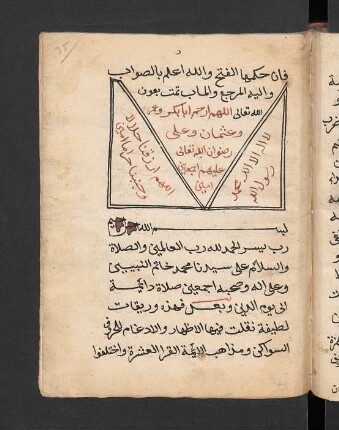 فان حكمها الفتح والله اعلم بالصواب
واليه المرجع والماب تمت بعون
الله تعالى اللهم ارحم ابا بكر وعمر
وعثمان وعلي
رضوان الله تعالى
عليهم اجمعين
امين
لا اله الا الله محمد
رسول الله
اللهم ارزقنا حلالا
وجنبنا حراما امين
بسم الله
رب يسر الحمد لله رب العالمين والصلاة
والسلام على سيدنا محمد خاتم النبيين
وعلى اله وصحبه اجمعين صلاة دائمة
الى يوم الدين وبعد فهذه وريقات
لطيفة نقلت فيها الاظهار والادغام للحرف
السواكن ومذاهب الائمة القرا العشرة واختلفوا